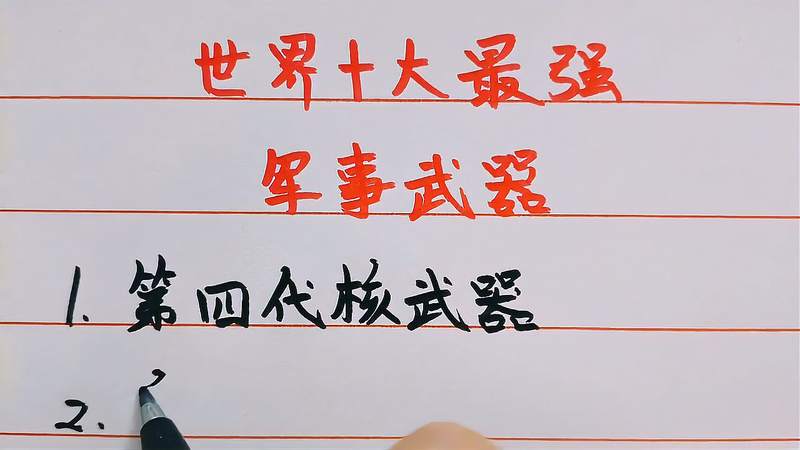 世界十大最强
军事武器
1. 第四代核武器
2.